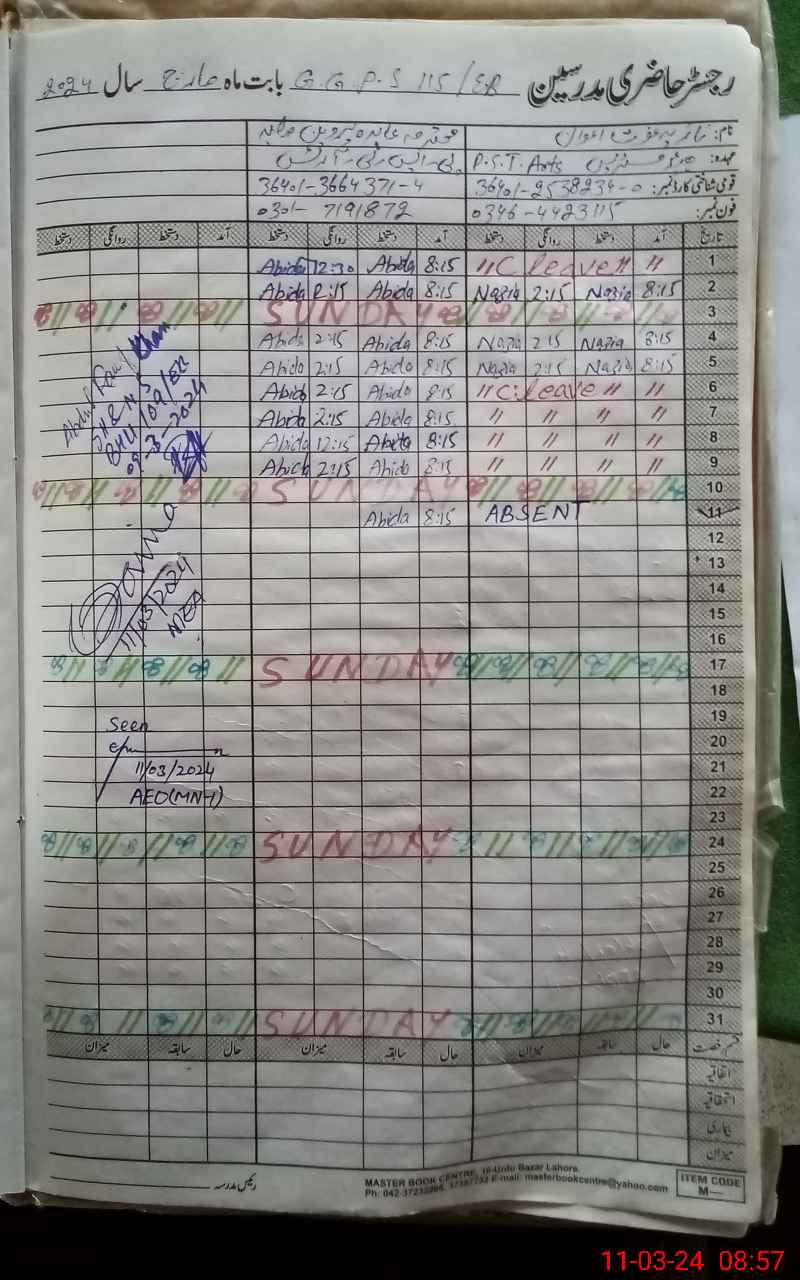 رجسٹر حاضری مدرسین G.G.P.S 115/EB بابت ماہ مارچ سال 2024
نام: نازیہ غوث اعوان محترمہ عابدہ پروین صاحبہ
عہدہ: P.S.T. Arts
قومی شناختی کارڈ نمبر: 36401-2538234-0 36401-3664371-4
فون نمبر: 0346-4423115 0301-7191872
تاریخ آمد دستخط روانگی دستخط آمد دستخط روانگی دستخط آمد دستخط روانگی دستخط
Abida 12:30 Abida 8:15 "C leave" " 1
Abida 2:15 Abida 8:15 Nazia 2:15 Nazia 8:15 2
SUNDAY 3
Abida 2:15 Abida 8:15 Nazia 2:15 Nazia 8:15 4
Abida 2:15 Abida 8:15 Nazia 2:15 Nazia 8:15 5
Abida 2:15 Abida 8:15 "C. leave" " 6
Abida 2:15 Abida 8:15 " " " " 7
Abida 12:15 Abida 8:15 " " " " 8
Abida 2:15 Abida 8:15 " " " " 9
SUNDAY 10
Abida 8:15 ABSENT 11
12
13
14
15
16
SUNDAY 17
18
19
20
21
22
23
SUNDAY 24
25
26
27
28
29
30
SUNDAY 31
Abdul Rauf Khan
SH&NS
BHU 109/EB
09-3-2024
11/03/2024
MEA
Seen
11/03/2024
AEO(MN-1)
قسم رخصت حال سابقہ میزان حال سابقہ میزان حال سابقہ میزان
اتفاقیہ
استحقاقیہ
بیماری
میزان
رئیس مدرسہ
MASTER BOOK CENTRE, 16-Urdu Bazar Lahore.
E-mail: masterbookcentre@yahoo.com
ITEM CODE
M—
11-03-24 08:57